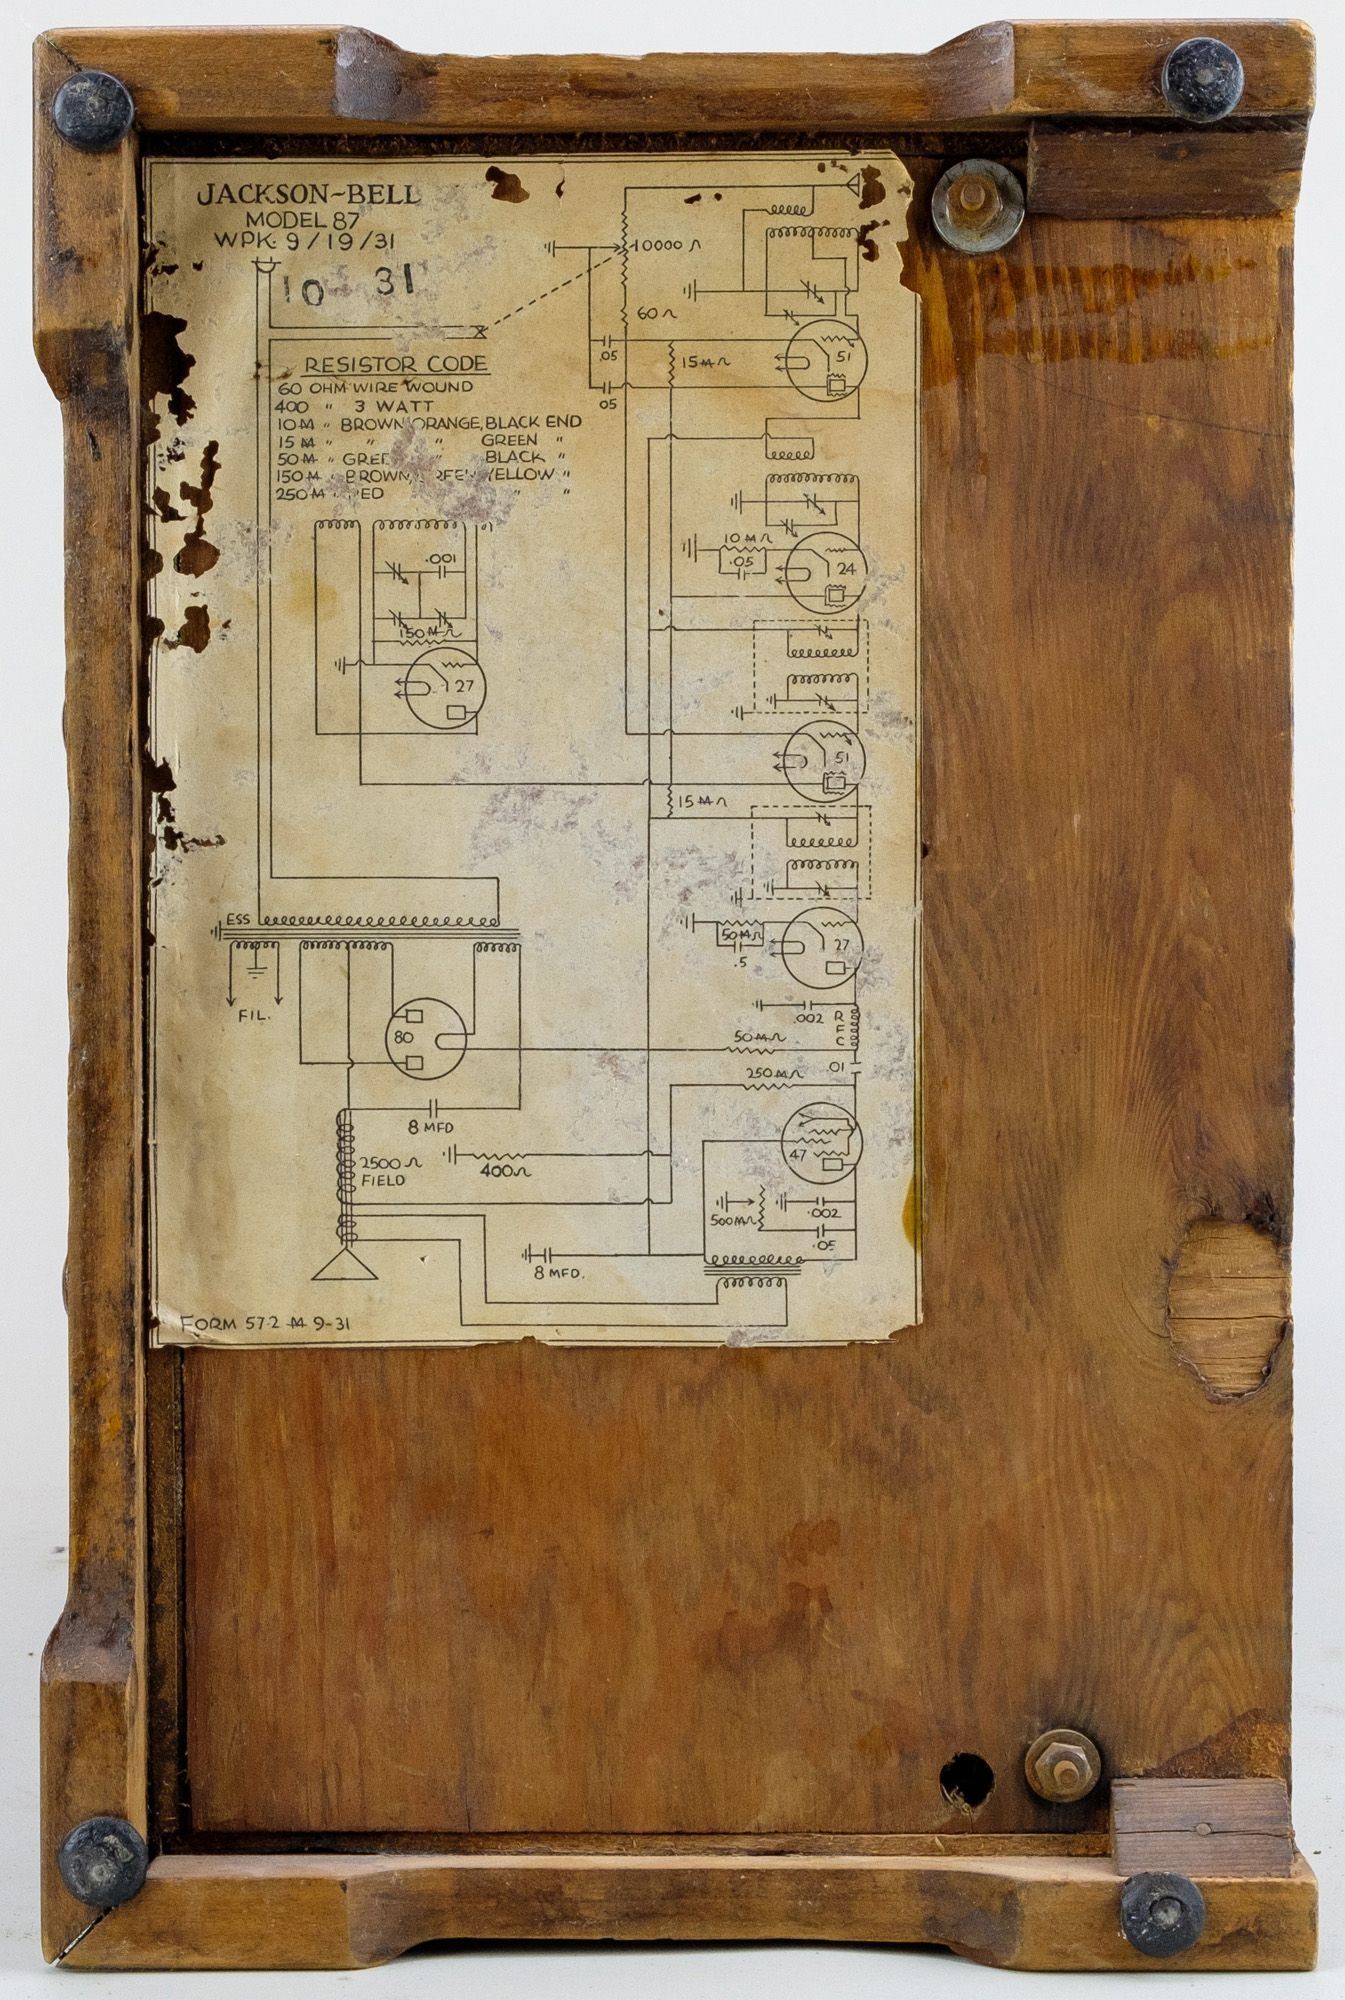 JACKSON~BELL
MODEL 87
WPK. 9/19/31
10 31
RESISTOR CODE
60 OHM WIRE WOUND
400 " 3 WATT
10M " BROWN, ORANGE, BLACK END
15M " " " GREEN "
50M " " BLACK "
150M " BROWN, YELLOW "
250M " " "
10000 Ω
60 Ω
.05
.05
15M Ω
51
10M Ω
.05
24
.001
150M Ω
27
51
15M Ω
50M Ω
.5
27
ESS
FIL.
80
.002
RFC
50M Ω
.01
250M Ω
8 MFD
2500 Ω
FIELD
400 Ω
47
500M Ω
.002
.05
8 MFD.
FORM 57-2 M 9-31